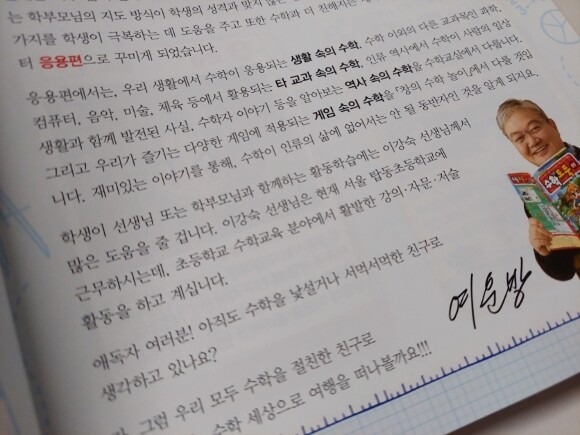 는 학부모님의 지도 방식이 학생의 성격과 맞지 않은
가지를 학생이 극복하는 데 도움을 주고 또한 수학과 더 친해지는
터 응용편으로 꾸미게 되었습니다.
응용편에서는, 우리 생활에서 수학이 응용되는 생활 속의 수학, 수학 이외의 다른 교과목인 과학,
컴퓨터, 음악, 미술, 체육 등에서 활용되는 타 교과 속의 수학, 인류 역사에서 수학이 사람의 일상
생활과 함께 발전된 사실, 수학자 이야기 등을 알아보는 역사 속의 수학을 수학교실에서 다룹니다.
그리고 우리가 즐기는 다양한 게임에 적용되는 게임 속의 수학을 「창의 수학 놀이」에서 다룰 것입
니다. 재미있는 이야기를 통해, 수학이 인류의 삶에 없어서는 안 될 동반자인 것을 알게 되지요.
학생이 선생님 또는 학부모님과 함께하는 활동학습에는 이강숙 선생님께서
많은 도움을 줄 겁니다. 이강숙 선생님은 현재 서울 탑동초등학교에
근무하시는데, 초등학교 수학교육 분야에서 활발한 강의·자문·저술
활동을 하고 계십니다.
애독자 여러분! 아직도 수학을 낯설거나 서먹서먹한 친구로
생각하고 있나요?
자, 그럼 우리 모두 수학을 절친한 친구로
수학 세상으로 여행을 떠나볼까요!!!
여운방
수학